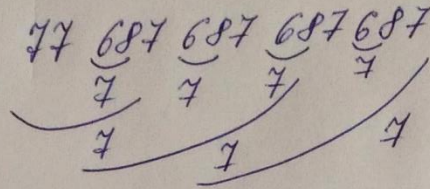 77 687 687 687 687
7 7 7 7
7 7 7